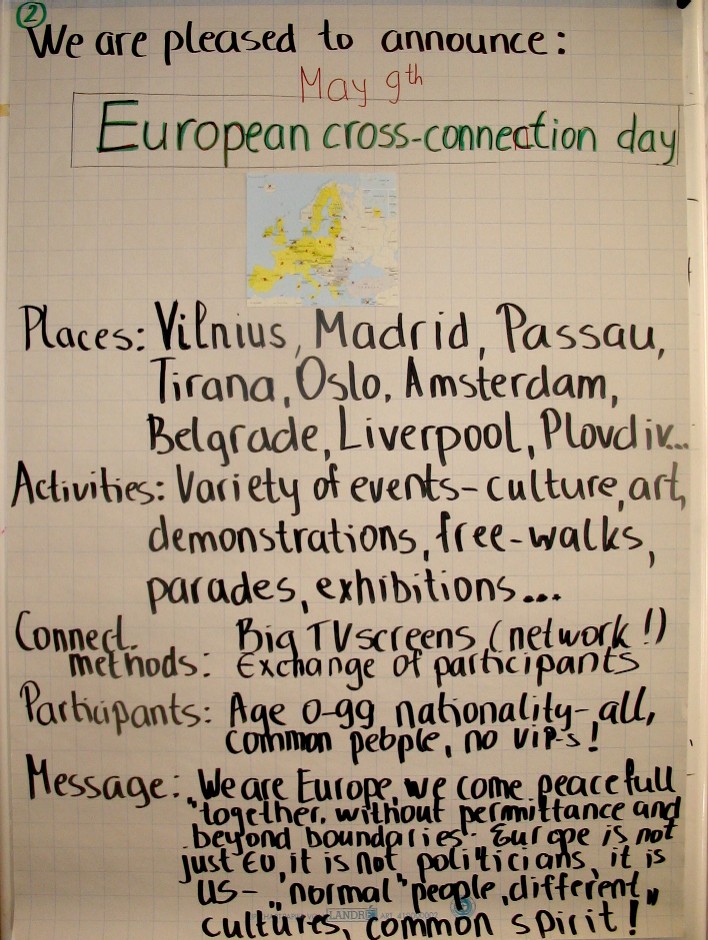 2
We are pleased to announce:
May 9th
European cross-connection day
Places: Vilnius, Madrid, Passau,
Tirana, Oslo, Amsterdam,
Belgrade, Liverpool, Plovdiv...
Activities: Variety of events-culture, art,
demonstrations, free-walks,
parades, exhibitions...
Connect. Big TV screens (network!)
methods: Exchange of participants
Participants: Age 0-99, nationality-all,
common people, no VIP-s!
Message: "We are Europe, we come peacefull
together, without permittance and
beyond boundaries. Europe is not
just EU, it is not politicians, it is
US- "normal" people, different
cultures, common spirit!"
LANDRÉ